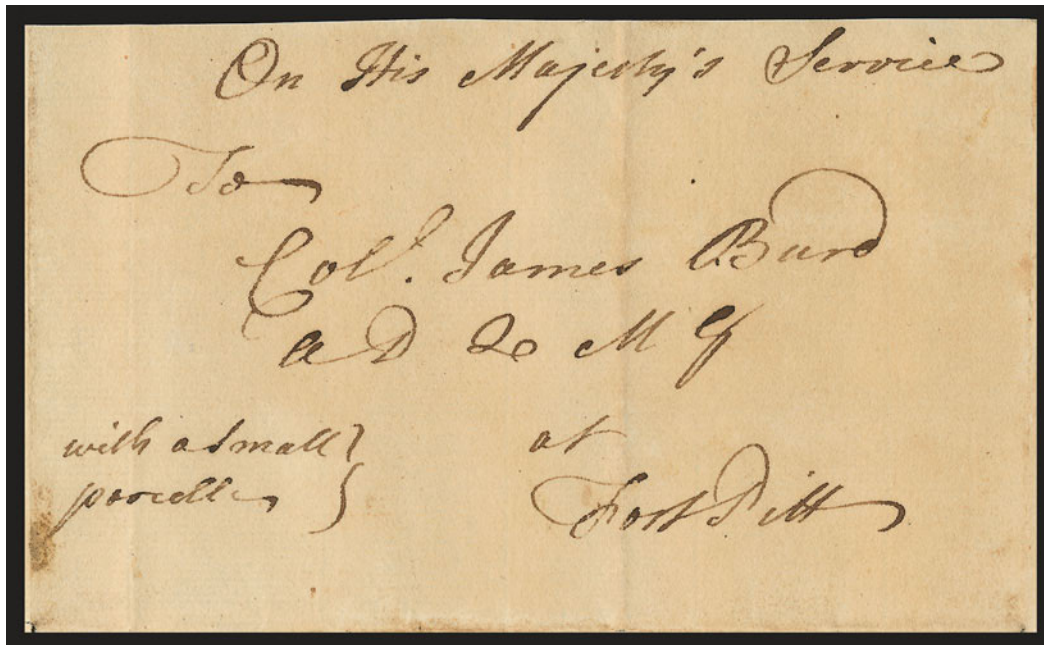 On His Majesty's Service
To
Coll. James Burd
A D Q M G
with a small }
parcell }
at
Fort Pitt